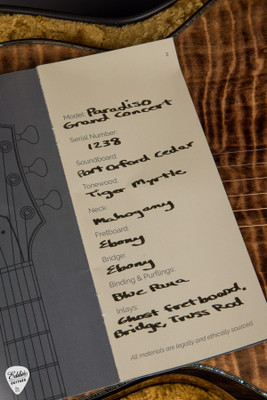 2
Model: Paradiso
Grand Concert
Serial Number:
1238
Soundboard:
Port Orford Cedar
Tonewood:
Tiger Myrtle
Neck:
Mahogany
Fretboard:
Ebony
Bridge:
Ebony
Binding & Purflings:
Blue Runa
Inlays:
Ghost fretboard,
Bridge, Truss Rod
All materials are legally and ethically sourced
Eddie's
GUITARS